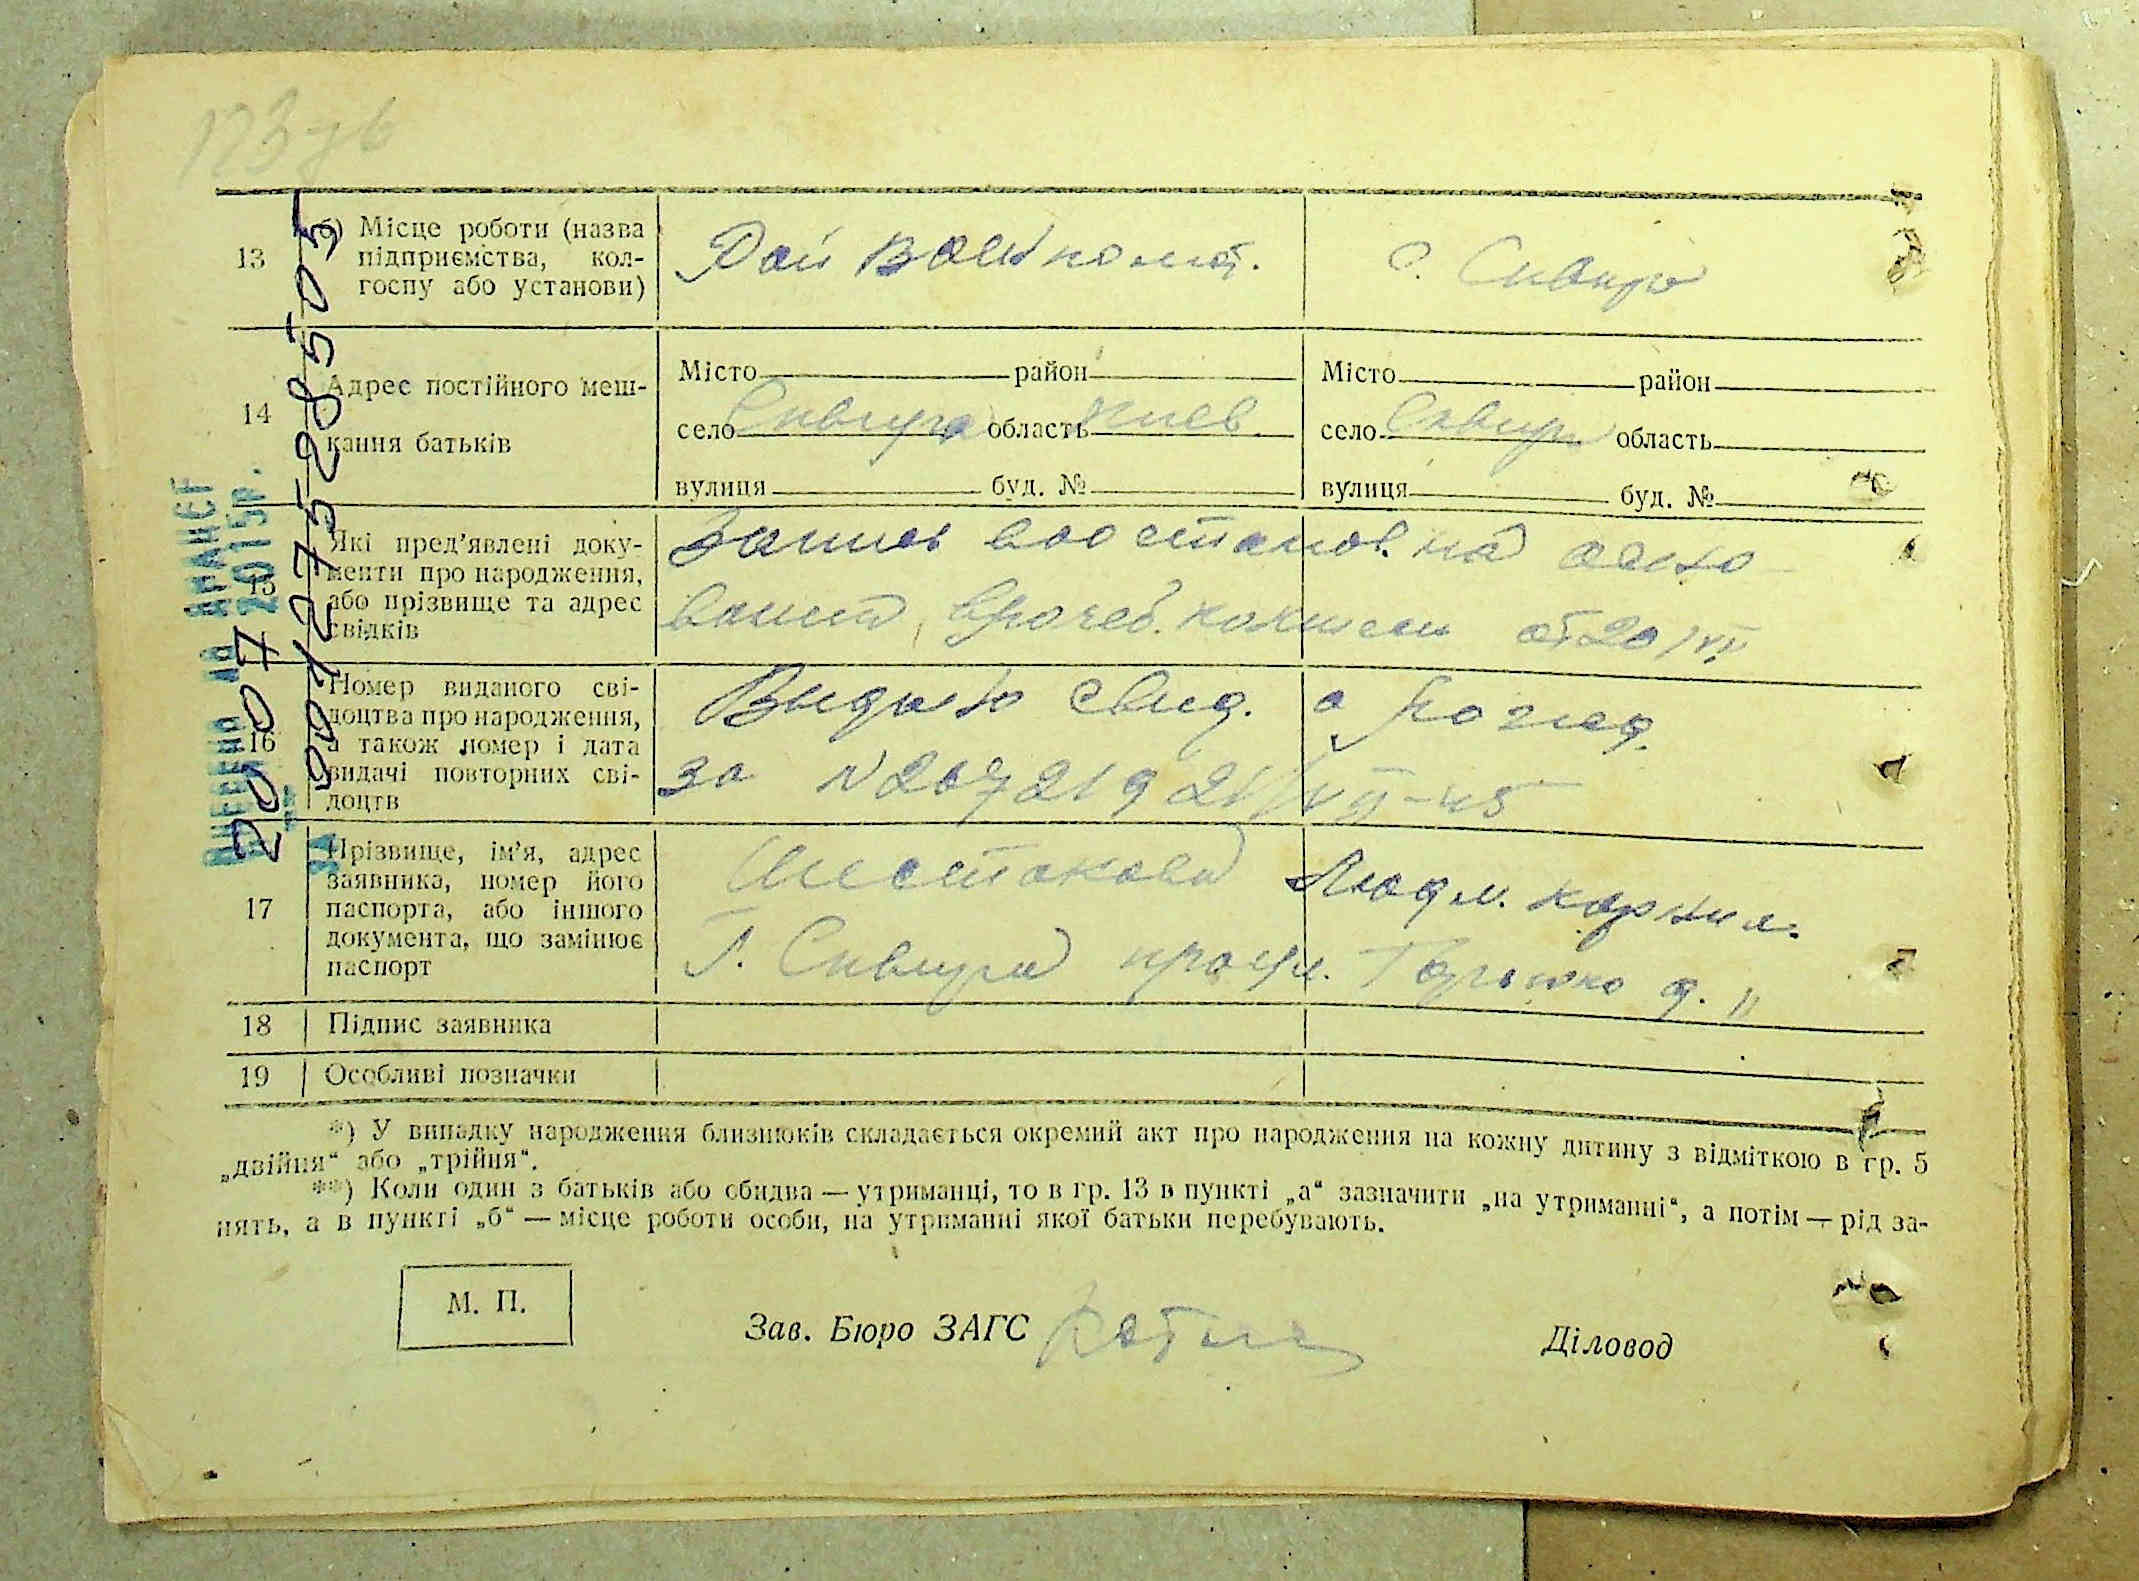 13
б) Місце роботи (назва
підприємства, кол-
госпу або установи)
Рай Военкомат.
С. Сквира
14
Адрес постійного меш-
кання батьків
Місто район
село Сквира область Киев
вулиця буд. №
Місто район
село Сквира область
вулиця буд. №
15
Які пред’явлені доку-
менти про народження,
або прізвище та адрес
свідків
Запись восстанов. на осно
вании врачеб. комиссии от 20/VI
16
Номер виданого сві-
доцтва про народження,
а також номер і дата
видачі повторних сві-
доцтв
Выдано свид. о рожд.
за N 207219 21/VII-45
17
Прізвище, ім’я, адрес
заявника, номер його
паспорта, або іншого
документа, що замінює
паспорт
Шестакова Людм. Корнил.
Г. Сквира Горького д. 11
18
Підпис заявника
19
Особливі позначки
*) У випадку народження близнюків складається окремий акт про народження на кожну дитину з відміткою в гр. 5
„двійня“ або „трійня“.
**) Коли один з батьків або обидва — утриманці, то в гр. 13 в пункті „а“ зазначити „на утриманні“, а потім — рід за-
нять, а в пункті „б“ — місце роботи особи, на утриманні якої батьки перебувають.
М. П.
Зав. Бюро ЗАГС
Діловод
ВНЕСЕНО ДО ДРАЦСГ
2007 2015р.
00127528503